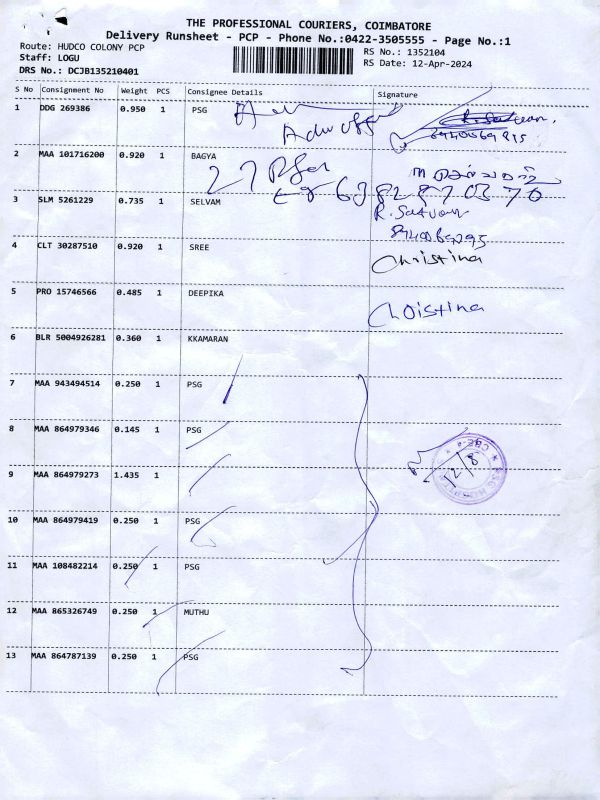 THE PROFESSIONAL COURIERS, COIMBATORE
Delivery Runsheet - PCP - Phone No.:0422-3505555 - Page No.:1
Route: HUDCO COLONY PCP
RS No.: 1352104
Staff: LOGU
RS Date: 12-Apr-2024
DRS No.: DCJB135210401
S No Consignment No Weight PCS Consignee Details Signature
1 DDG 269386 0.950 1 PSG
R. Sarvan.
2 MAA 101716200 0.920 1 BAGYA
27
6382870370
3 SLM 5261229 0.735 1 SELVAM
R. Sarvan
4 CLT 30287510 0.920 1 SREE
Christina
5 PRO 15746566 0.485 1 DEEPIKA
Christina
6 BLR 5004926281 0.360 1 KKAMARAN
7 MAA 943494514 0.250 1 PSG
8 MAA 864979346 0.145 1 PSG
9 MAA 864979273 1.435 1
12/8
10 MAA 864979419 0.250 1 PSG
11 MAA 108482214 0.250 1 PSG
12 MAA 865326749 0.250 1 MUTHU
13 MAA 864787139 0.250 1 PSG